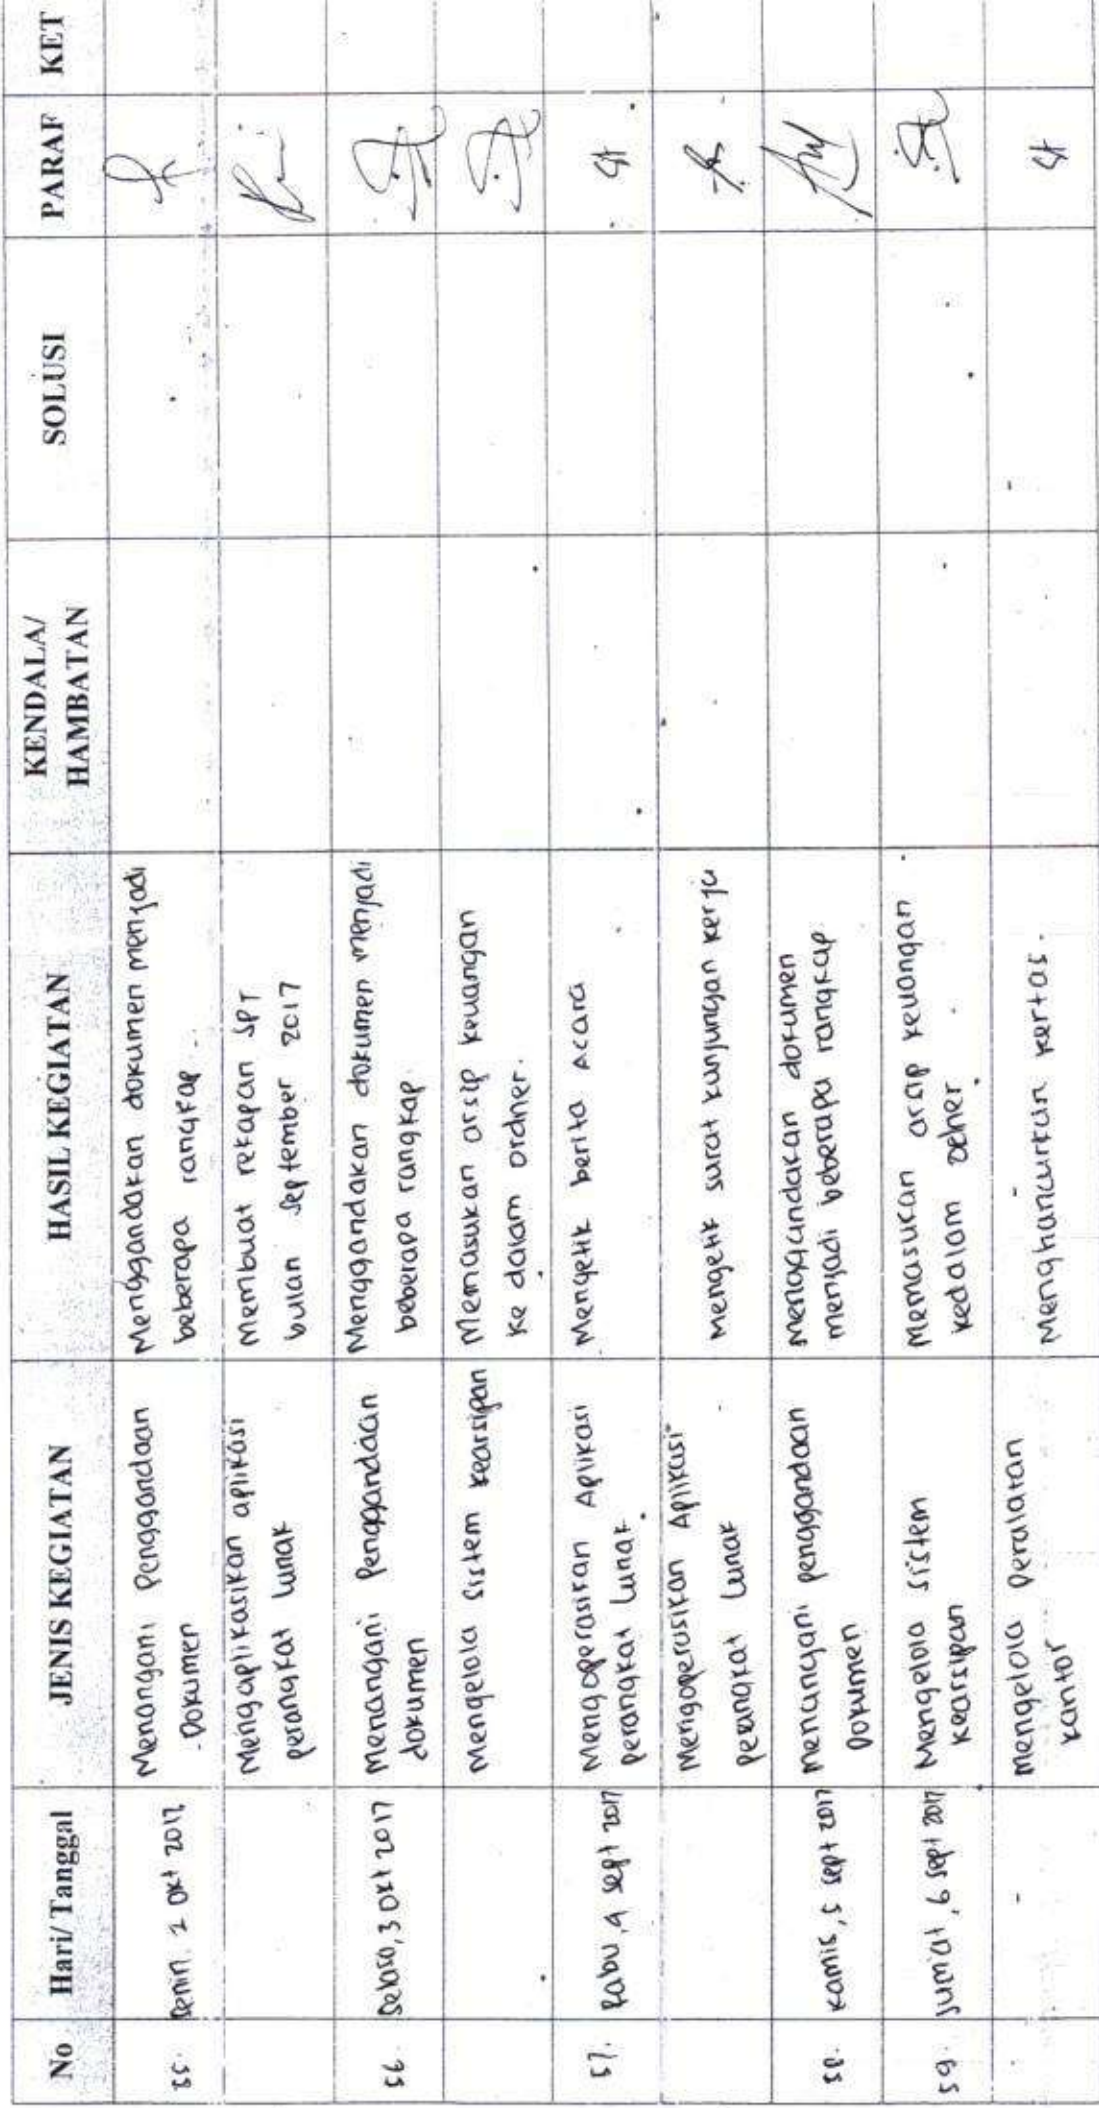 No
Hari/ Tanggal
JENIS KEGIATAN
HASIL KEGIATAN
KENDALA/
HAMBATAN
SOLUSI
PARAF
KET
55.
Senin, 2 Okt 2017
Menangani Penggandaan
Dokumen
Menggandakan dokumen menjadi
beberapa rangkap.
Mengaplikasikan aplikasi
perangkat Lunak
Membuat rekapan SPT
bulan September 2017
56.
Selasa, 3 Okt 2017
Menangani Penggandaan
dokumen
Menggandakan dokumen menjadi
beberapa rangkap.
Mengelola Sistem kearsipan
Memasukan arsip keuangan
ke dalam ordner.
57.
Rabu, 4 Sept 2017
Mengoperasikan Aplikasi
perangkat Lunak.
Mengetik berita Acara
Mengoperasikan Aplikasi
perangkat Lunak
Mengetik surat kunjungan kerja
58.
Kamis, 5 Sept 2017
Menangani penggandaan
Dokumen
Menggandakan dokumen
menjadi beberapa rangkap
59.
Jumat, 6 Sept 2017
Mengelola sistem
kearsipan
Memasukan arsip keuangan
kedalam
Mengelola Peralatan
kantor
Menghancurkan kertas.